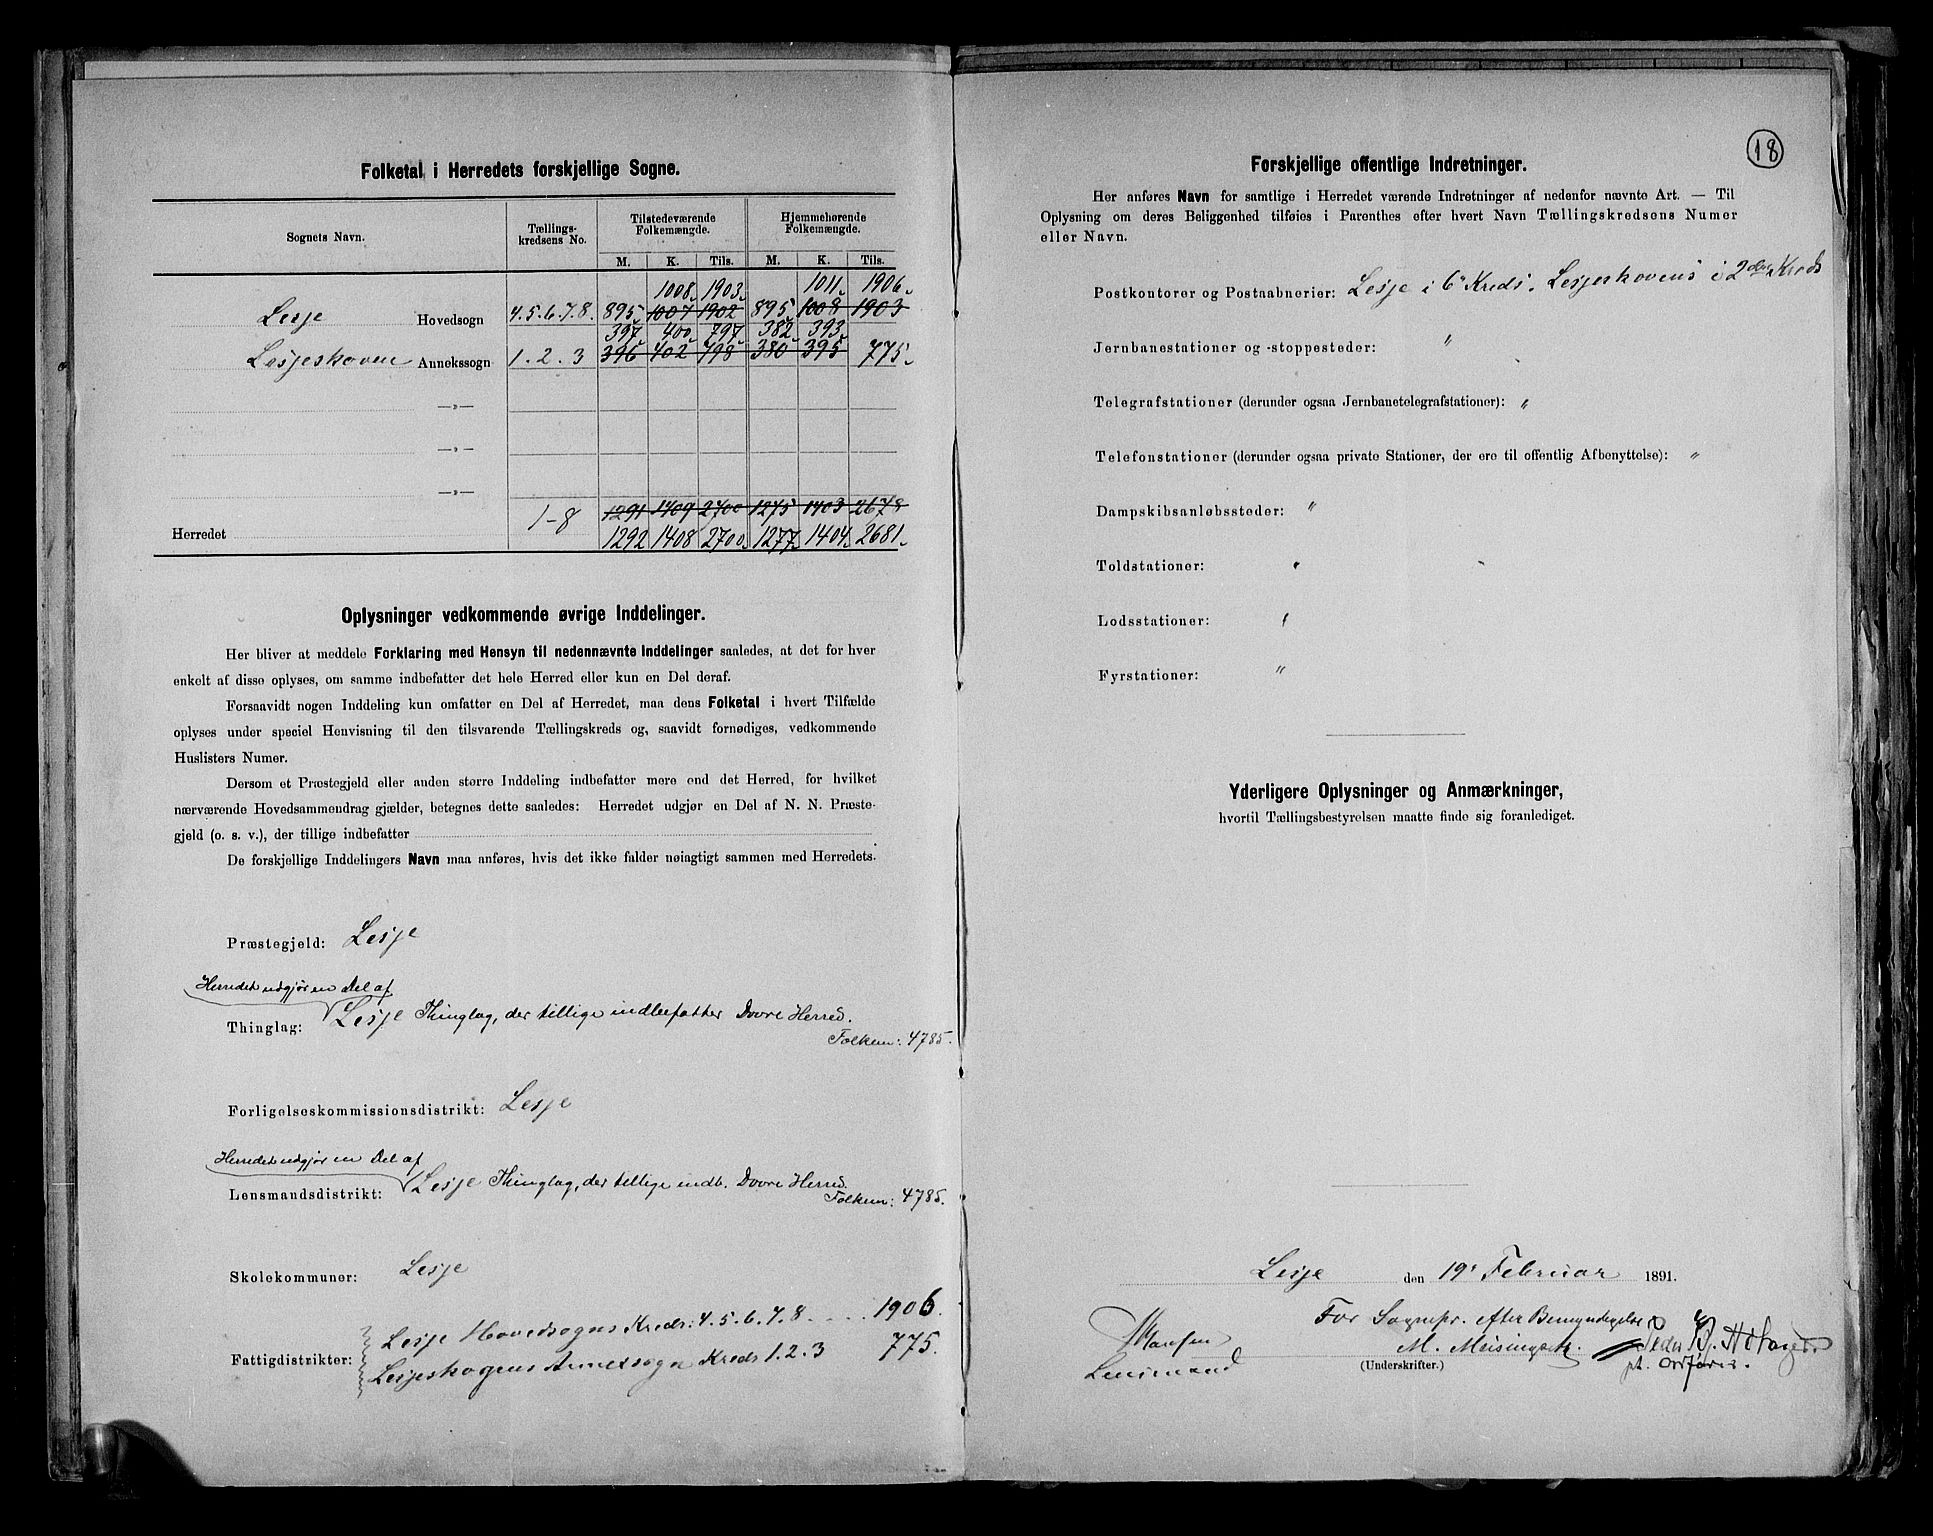 Folketal i Herredets forskjellige Sogne.
Sognets Navn. Tællings- kredsens No. Tilstedeværende Folkemængde. Hjemmehørende Folkemængde.
M. K. Tils. M. K. Tils.
1008 1903 1011 1906
Lesje Hovedsogn 4.5.6.7.8. 895 1007 1902 895 1008 1903
397 400 797 382 393
Lesjeskoven Annekssogn 1. 2. 3 396 402 798 380 395 775
—»—
—»—
—»—
1-8 1291 1409 2700 1275 1403 2678
Herredet 1292 1408 2700 1277 1404 2681
Oplysninger vedkommende øvrige Inddelinger.
Her bliver at meddele Forklaring med Hensyn til nedennævnte Inddelinger saaledes, at det for hver
enkelt af disse oplyses, om samme indbefatter det hele Herred eller kun en Del deraf.
Forsaavidt nogen Inddeling kun omfatter en Del af Herredet, maa dens Folketal i hvert Tilfælde
oplyses under speciel Henvisning til den tilsvarende Tællingskreds og, saavidt fornødiges, vedkommende
Huslisters Numer.
Dersom et Præstegjeld eller anden større Inddeling indbefatter mere end det Herred, for hvilket
nærværende Hovedsammendrag gjælder, betegnes dette saaledes: Herredet udgjør en Del af N. N. Præste-
gjeld (o. s. v.), der tillige indbefatter
De forskjellige Inddelingers Navn maa anføres, hvis det ikke falder nøiagtigt sammen med Herredets.
Præstegjeld: Lesje
Herredet udgjør en Del af
Thinglag: Lesje Thinglag, der tillige indbefatter Dovre Herred.
Folkem: 4785.
Forligelseskommissionsdistrikt: Lesje
Herredet udgjør en Del af
Lensmandsdistrikt: Lesje Thinglag, der tillige indb. Dovre Herred.
Folkem: 4785.
Skolekommuner: Lesje
Lesje Hovedsogns Kreds: 4. 5. 6. 7. 8 .... 1906.
Fattigdistrikter: Lesjeskogens Annexsogn Kreds 1. 2. 3 775.
18
Forskjellige offentlige Indretninger.
Her anføres Navn for samtlige i Herredet værende Indretninger af nedenfor nævnte Art. — Til
Oplysning om deres Beliggenhed tilføies i Parenthes efter hvert Navn Tællingskredsens Numer
eller Navn.
Postkontorer og Postaabnerier: Lesje i 6 Kreds. Lesjeskovens i 2den Kreds
Jernbanestationer og -stoppesteder: "
Telegrafstationer (derunder ogsaa Jernbanetelegrafstationer): "
Telefonstationer (derunder ogsaa private Stationer, der ere til offentlig Afbenyttelse): "
Dampskibsanløbssteder: "
Toldstationer: "
Lodsstationer: "
Fyrstationer: "
Yderligere Oplysninger og Anmærkninger,
hvortil Tællingsbestyrelsen maatte finde sig foranlediget.
Lesje den 19. Februar 1891.
For Sognepr. efter Bemyndigelse
M. Meisingseth.
Lensmand
(Underskrifter.)
pt. Ordfører.